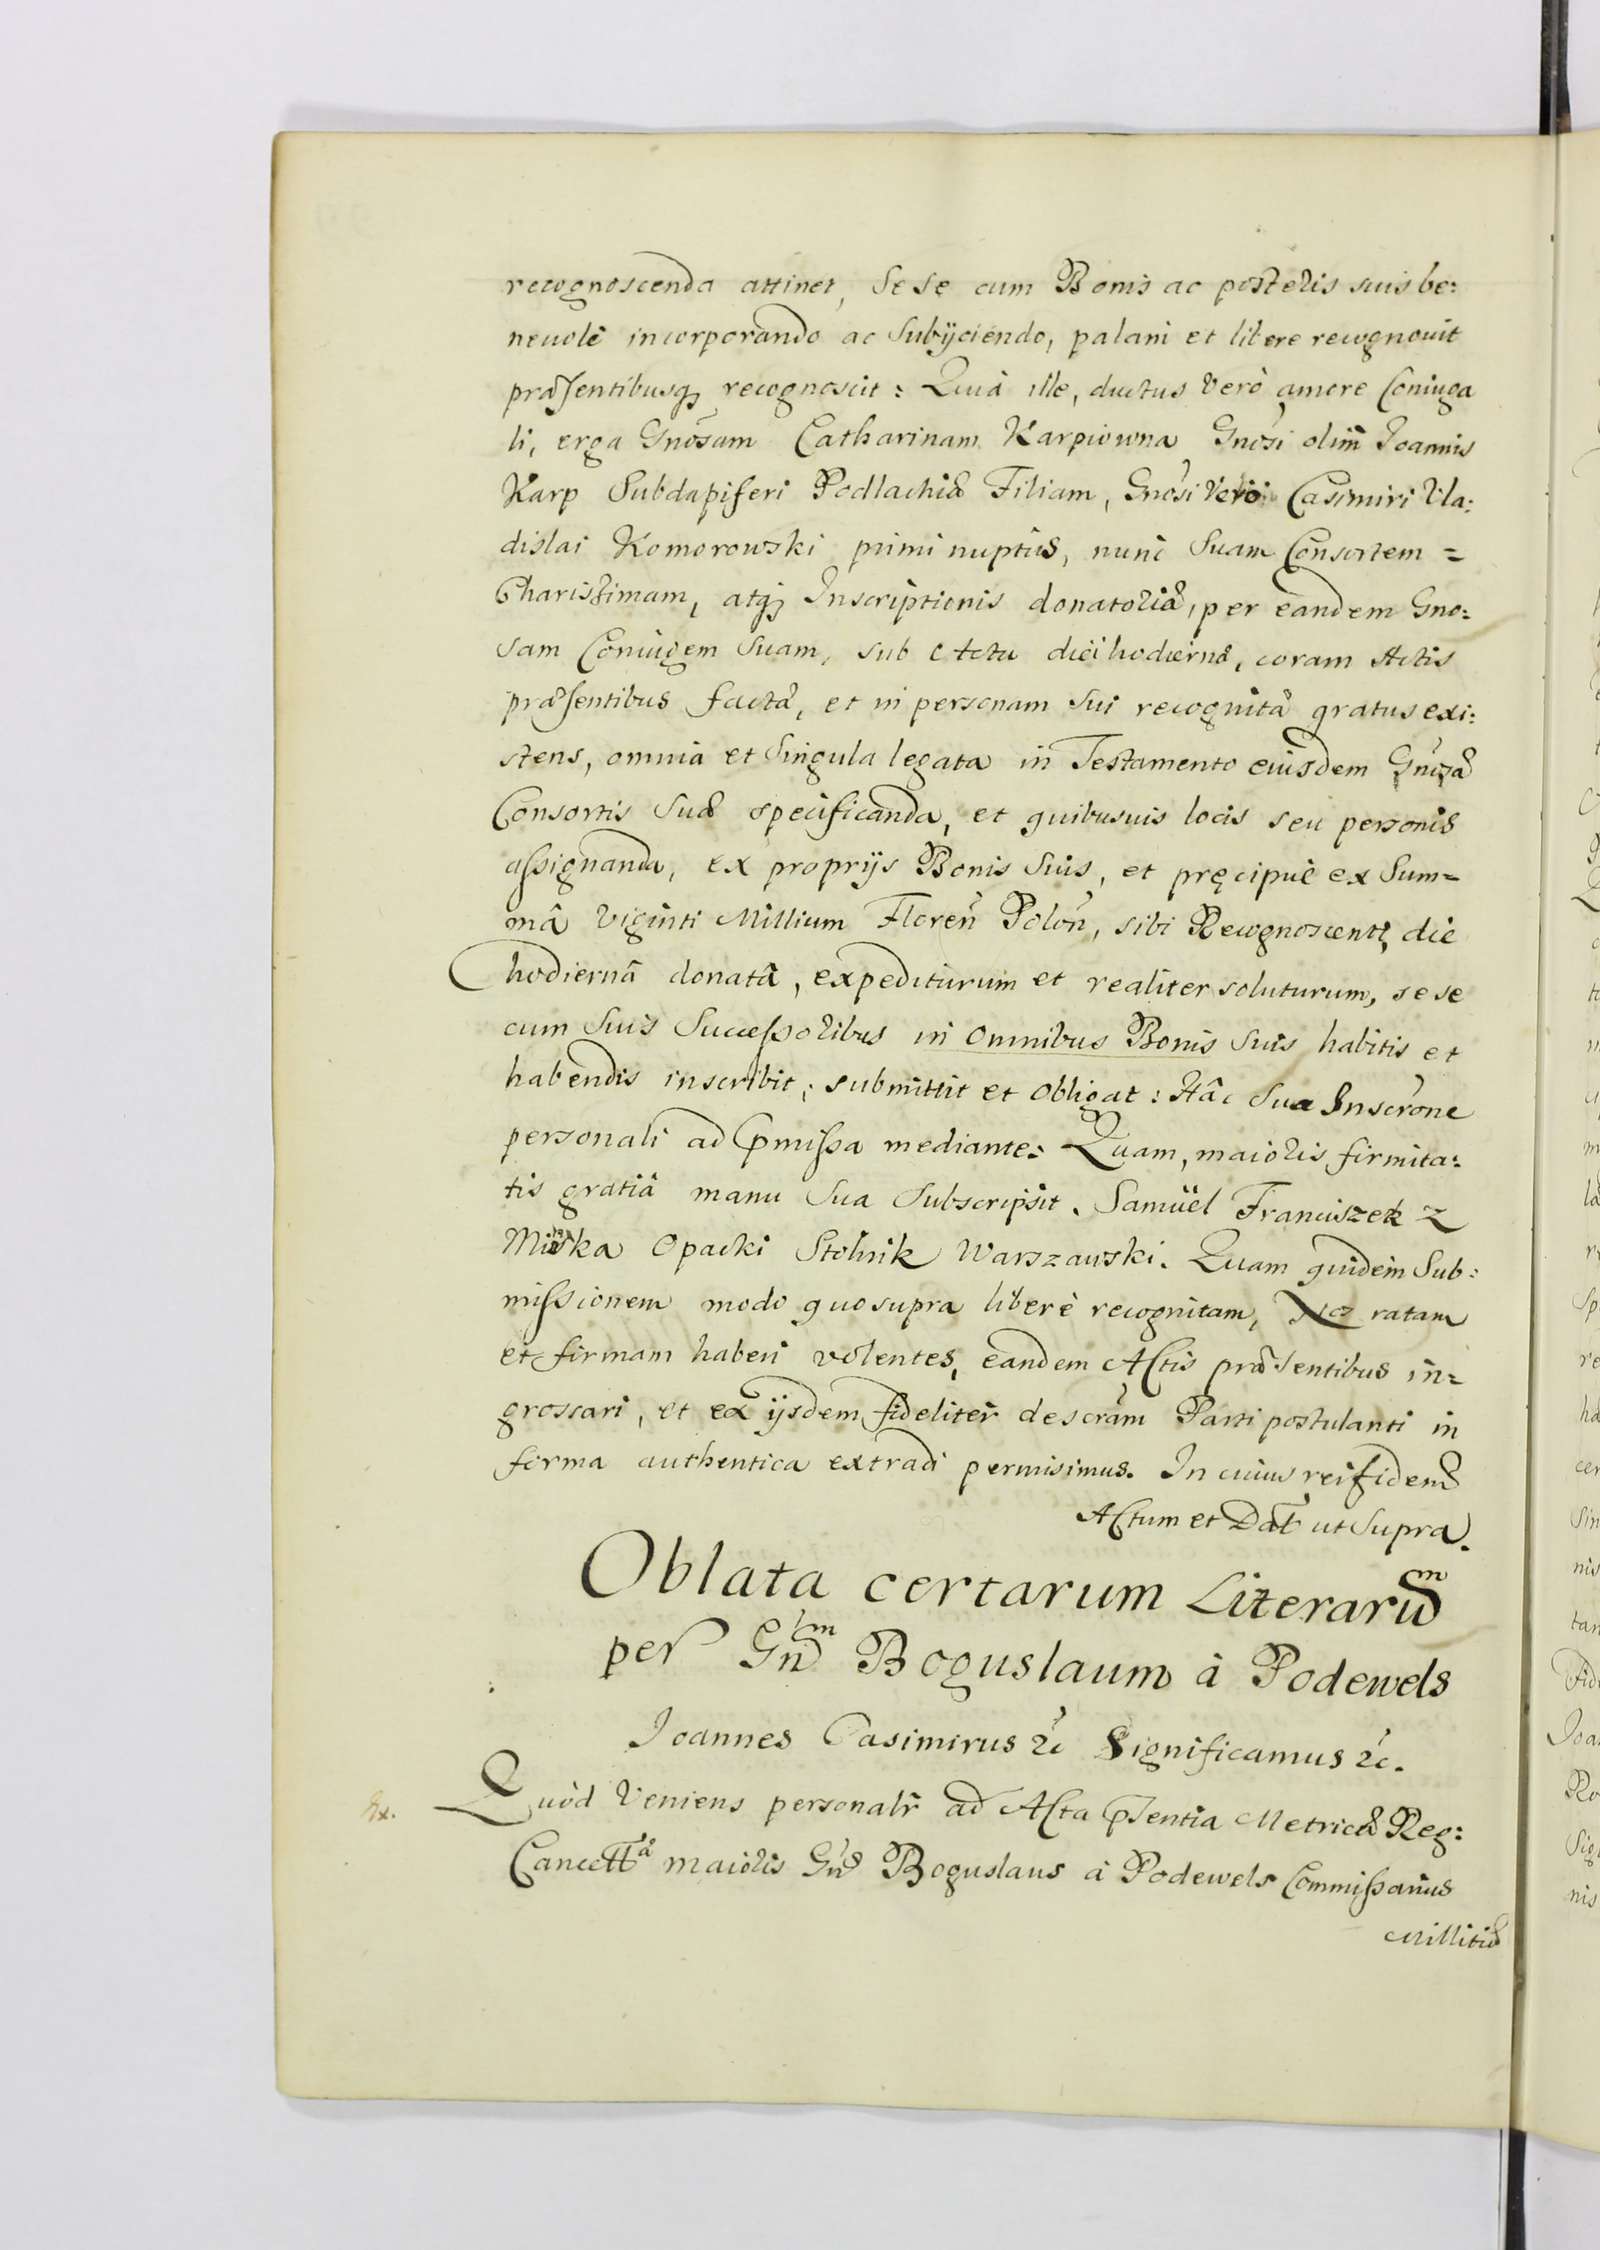 recognoscenda attinet, Sese cum Bonis ac posteris suis be:
neuolè incorporando ac subijciendo, palam et libere recognouit
præsentibusq́ recognoscit: Quià ille, ductus verò amore Coniuga
li, erga Gnōsam Catharinam Karpiowna Gnōsi olim Joannis
Karp Subdapiferi Podlachiæ Filiam, Gnōsi verò Casimiri Vla:
dislai Komorowski primi nuptus, nunc Suam Consortem =
Charissimam, atq́ Inscriptionis donatoriæ, per eandem Gno:
sam Coniugem Suam, sub Actu diei hodiernæ, coram Actis
præsentibus factæ, et in personam sui recognitæ gratus exi:
stens, omnia et singula legata in Testamento eiusdem Gnōsæ
Consortis Suæ specificanda, et quibusuis locis seu personis
assignanda, ex proprijs Bonis Suis, et pręcipuè ex Sum=
mâ Viginti Millium Floreñ Poloñ, sibi Recognoscenti, die
hodiernâ donatâ, expediturum et realiter soluturum, sese
cum Suis Successoribus in omnibus Bonis Suis habitis et
habendis inscribit, submittit et obligat: Hâc Sua Inscrōne
personali ad pmissa mediante: Quam, maioris firmita:
tis gratiâ manu Sua Subscripsit. Samüel Franciszek z
Minska Opacki Stolnik Warszawski. Quam quidem Sub:
missionem modo quo supra liberè recognitam, Nos ratam
et firmam haberi volentes, eandem Actis præsentibus in=
grossari, et ex ijsdem fideliter descrām Parti postulanti in
forma authentica extradi permisimus. In cuius rei fidem
Actum et Dat ut Supra.
Oblata certarum Literarūm
per Gnūm Boguslaum â Podewels
Joannes Casimirus &c Significamus &c.
Ex. Quòd Veniens personalr ad Acta pŝentia Metricæ Reg:
Cancellæ maioris Gnūs Boguslaus â Podewels Commissarius
Millitiæ